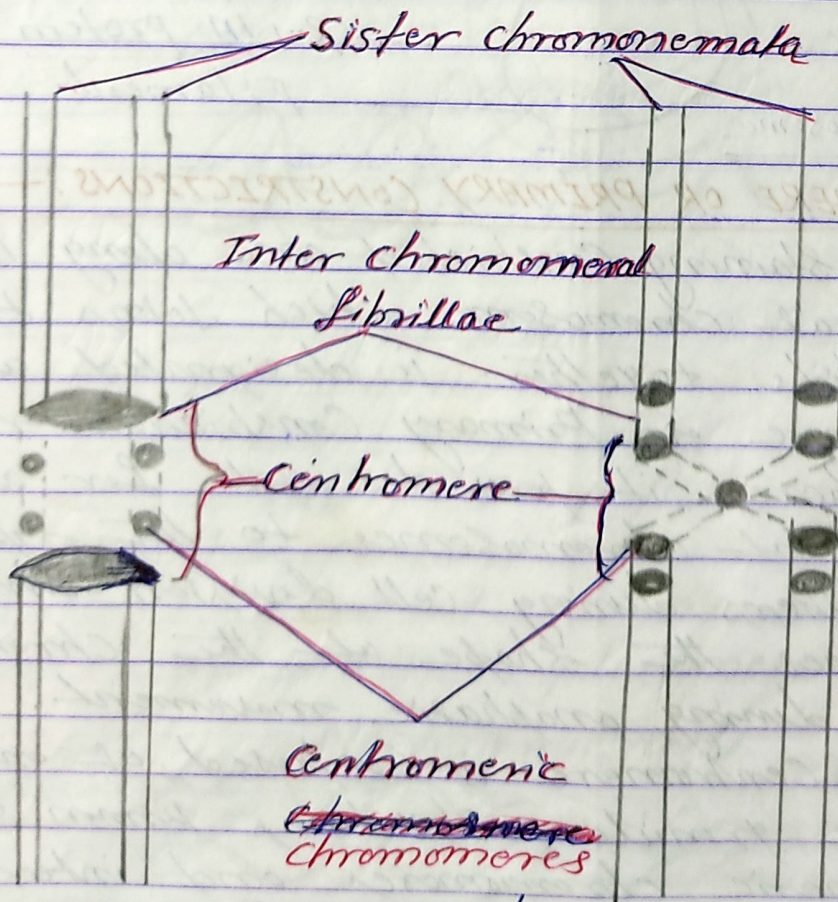 Sister chromonemata
Inter chromomeral
fibrillae
Centromere
Centromeric
Chromomeres